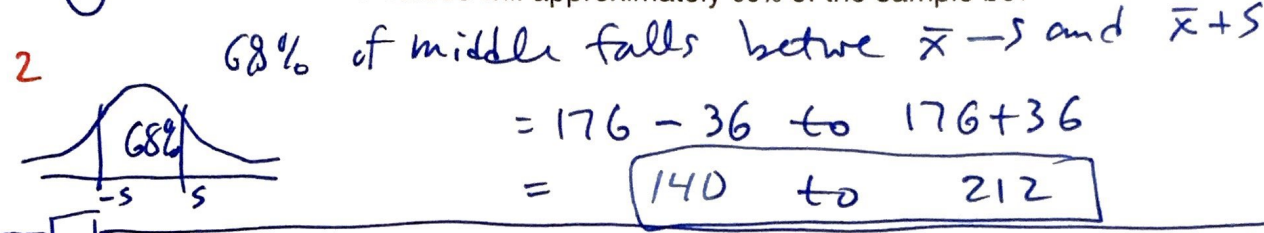 68% of middle falls betwe x̄ - s and x̄ + s
2
68%
= 176 - 36 to 176+36
-s s
= 140 to 212